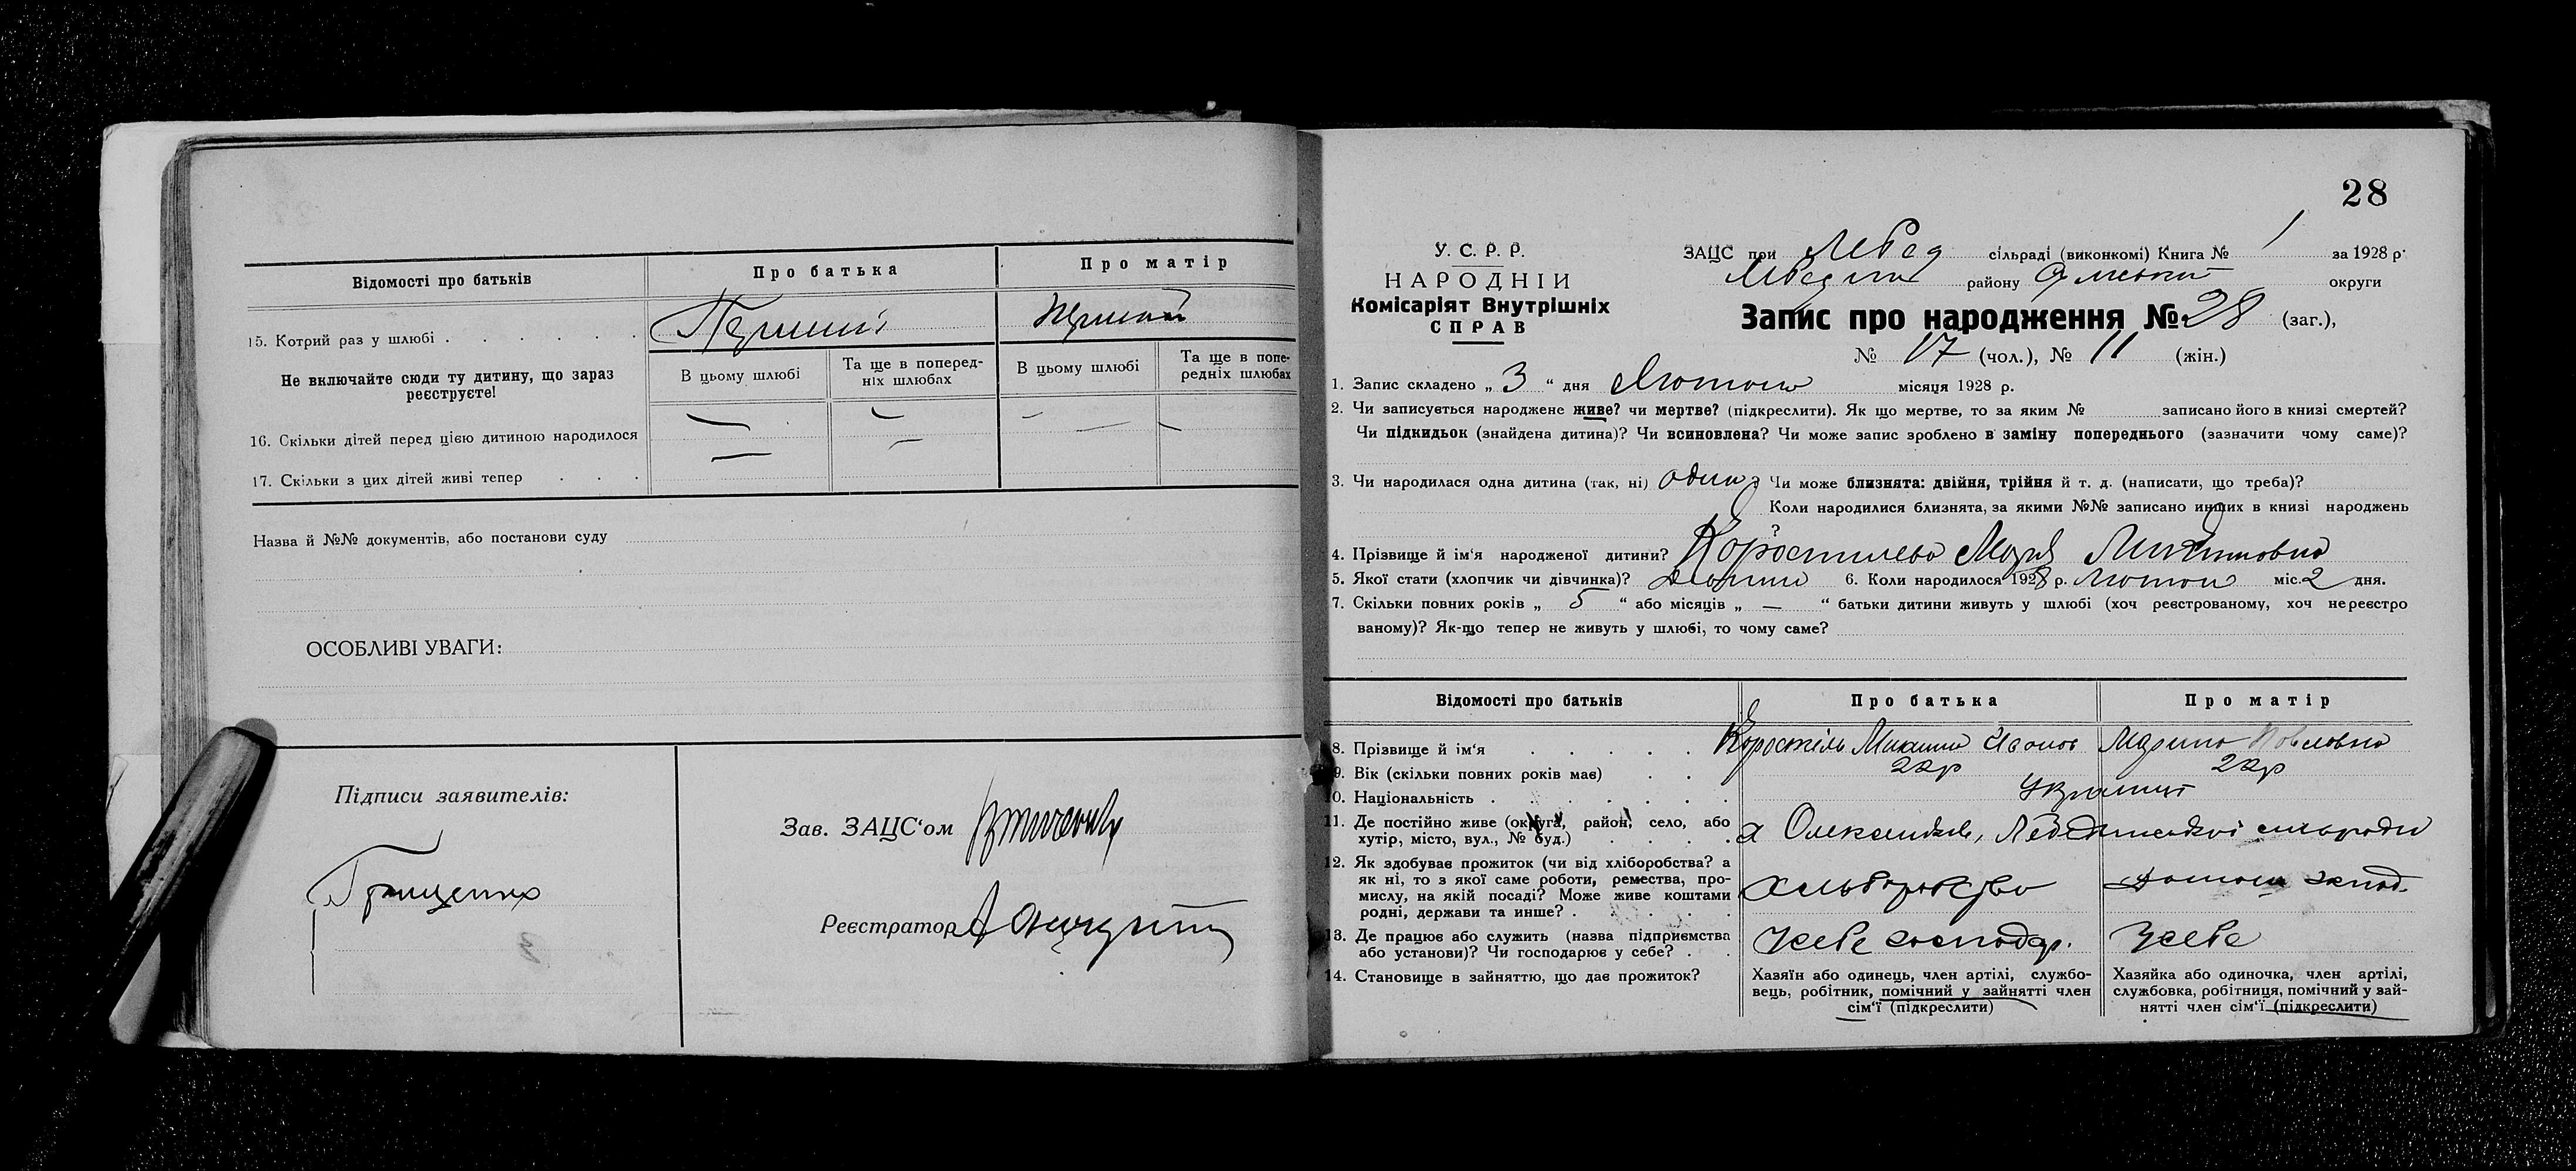 Відомості про батьків
Про батька
Про матір
15. Котрий раз у шлюбі
Перший
Не включайте сюди ту дитину, що зараз
реєструєте!
В цьому шлюбі
Та ще в поперед-
ніх шлюбах
В цьому шлюбі
Та ще в попе-
редніх шлюбах
16. Скільки дітей перед цією дитиною народилося
17. Скільки з цих дітей живі тепер
Назва й №№ документів, або постанови суду
ОСОБЛИВІ УВАГИ:
Підписи заявителів:
Грищенко
Зав. ЗАЦС‘ом
Реєстратор
28
У. С. Р. Р.
НАРОДНІЙ
Комісаріят Внутрішніх
СПРАВ
ЗАЦС при Лебед сільраді (виконкомі) Книга № 1 за 1928 р.
району Сумської округи
Запис про народження № 28 (заг.),
№ 17 (чол.), № 11 (жін.)
1. Запис складено „ 3 “ дня Лютого місяця 1928 р.
2. Чи записується народжене живе? чи мертве? (підкреслити). Як що мертве, то за яким № записано його в книзі смертей?
Чи підкидьок (знайдена дитина)? Чи всиновлена? Чи може запис зроблено в заміну попереднього (зазначити чому саме)?
3. Чи народилася одна дитина (так, ні) одна Чи може близнята: двійня, трійня й т. д. (написати, що треба)?
Коли народилися близнята, за якими №№ записано инших в книзі народжень
?
4. Прізвище й ім‘я народженої дитини? Коростилева Марія
5. Якої статі (хлопчик чи дівчинка)? 6. Коли народилося 1928 р. Лютого міс. 2 дня.
7. Скільки повних років „ 5 “ або місяців „ — “ батьки дитини живуть у шлюбі (хоч реєстрованому, хоч нереєстро
ваному)? Як-що тепер не живуть у шлюбі, то чому саме?
Відомості про батьків
Про батька
Про матір
8. Прізвище й ім‘я
Коростіль Микита Іванов
Марина Павловна
9. Вік (скільки повних років має)
10. Національність
11. Де постійно живе (округа, район, село, або
хутір, місто, вул., № буд.)
12. Як здобуває прожиток (чи від хліборобства? а
як ні, то з якої саме роботи, ремества, про-
мислу, на якій посаді? Може живе коштами
родні, держави та инше?
Хліборобство
13. Де працює або служить (назва підприємства
або установи)? Чи господарює у себе?
У себе господар.
У себе
14. Становище в зайняттю, що дає прожиток?
Хазяїн або одинець, член артілі, службо-
вець, робітник, помічний у зайнятті член
сім‘ї (підкреслити)
Хазяйка або одиночка, член артілі,
службовка, робітниця, помічний у зай-
нятті член сім‘ї (підкреслити)